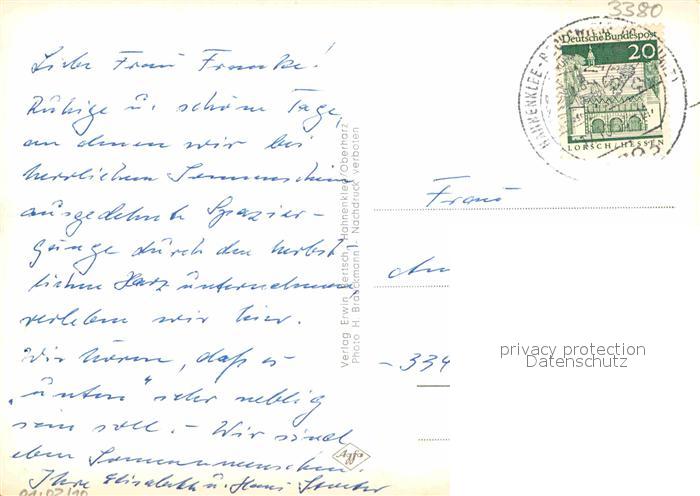 3380
Deutsche Bundespost
20
LORSCH/HESSEN
HAHNENKLEE-
Liebe Frau Franke!
Ruhige u. schöne Tage,
an denen wir bei
herrlichem Sonnenschein
ausgedehnte Spazier-
gänge durch den herbst-
lichen Harz unternehmen,
verleben wir hier.
Wir hören, daß es
„unten" sehr neblig
sein soll. - Wir sind
eben Sonnenmenschen.
Ihre Elisabeth u. Hans
Verlag Erwin Hahnenklee/Oberharz
Photo H. Brauckmann Nachdruck verboten
Agfa
Frau
An
-334
privacy protection
Datenschutz